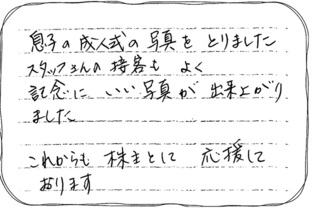 息子の成人式の写真をとりました
スタッフさんの接客もよく
記念にいい写真が出来上がり
ました
これからも株主として応援して
おります